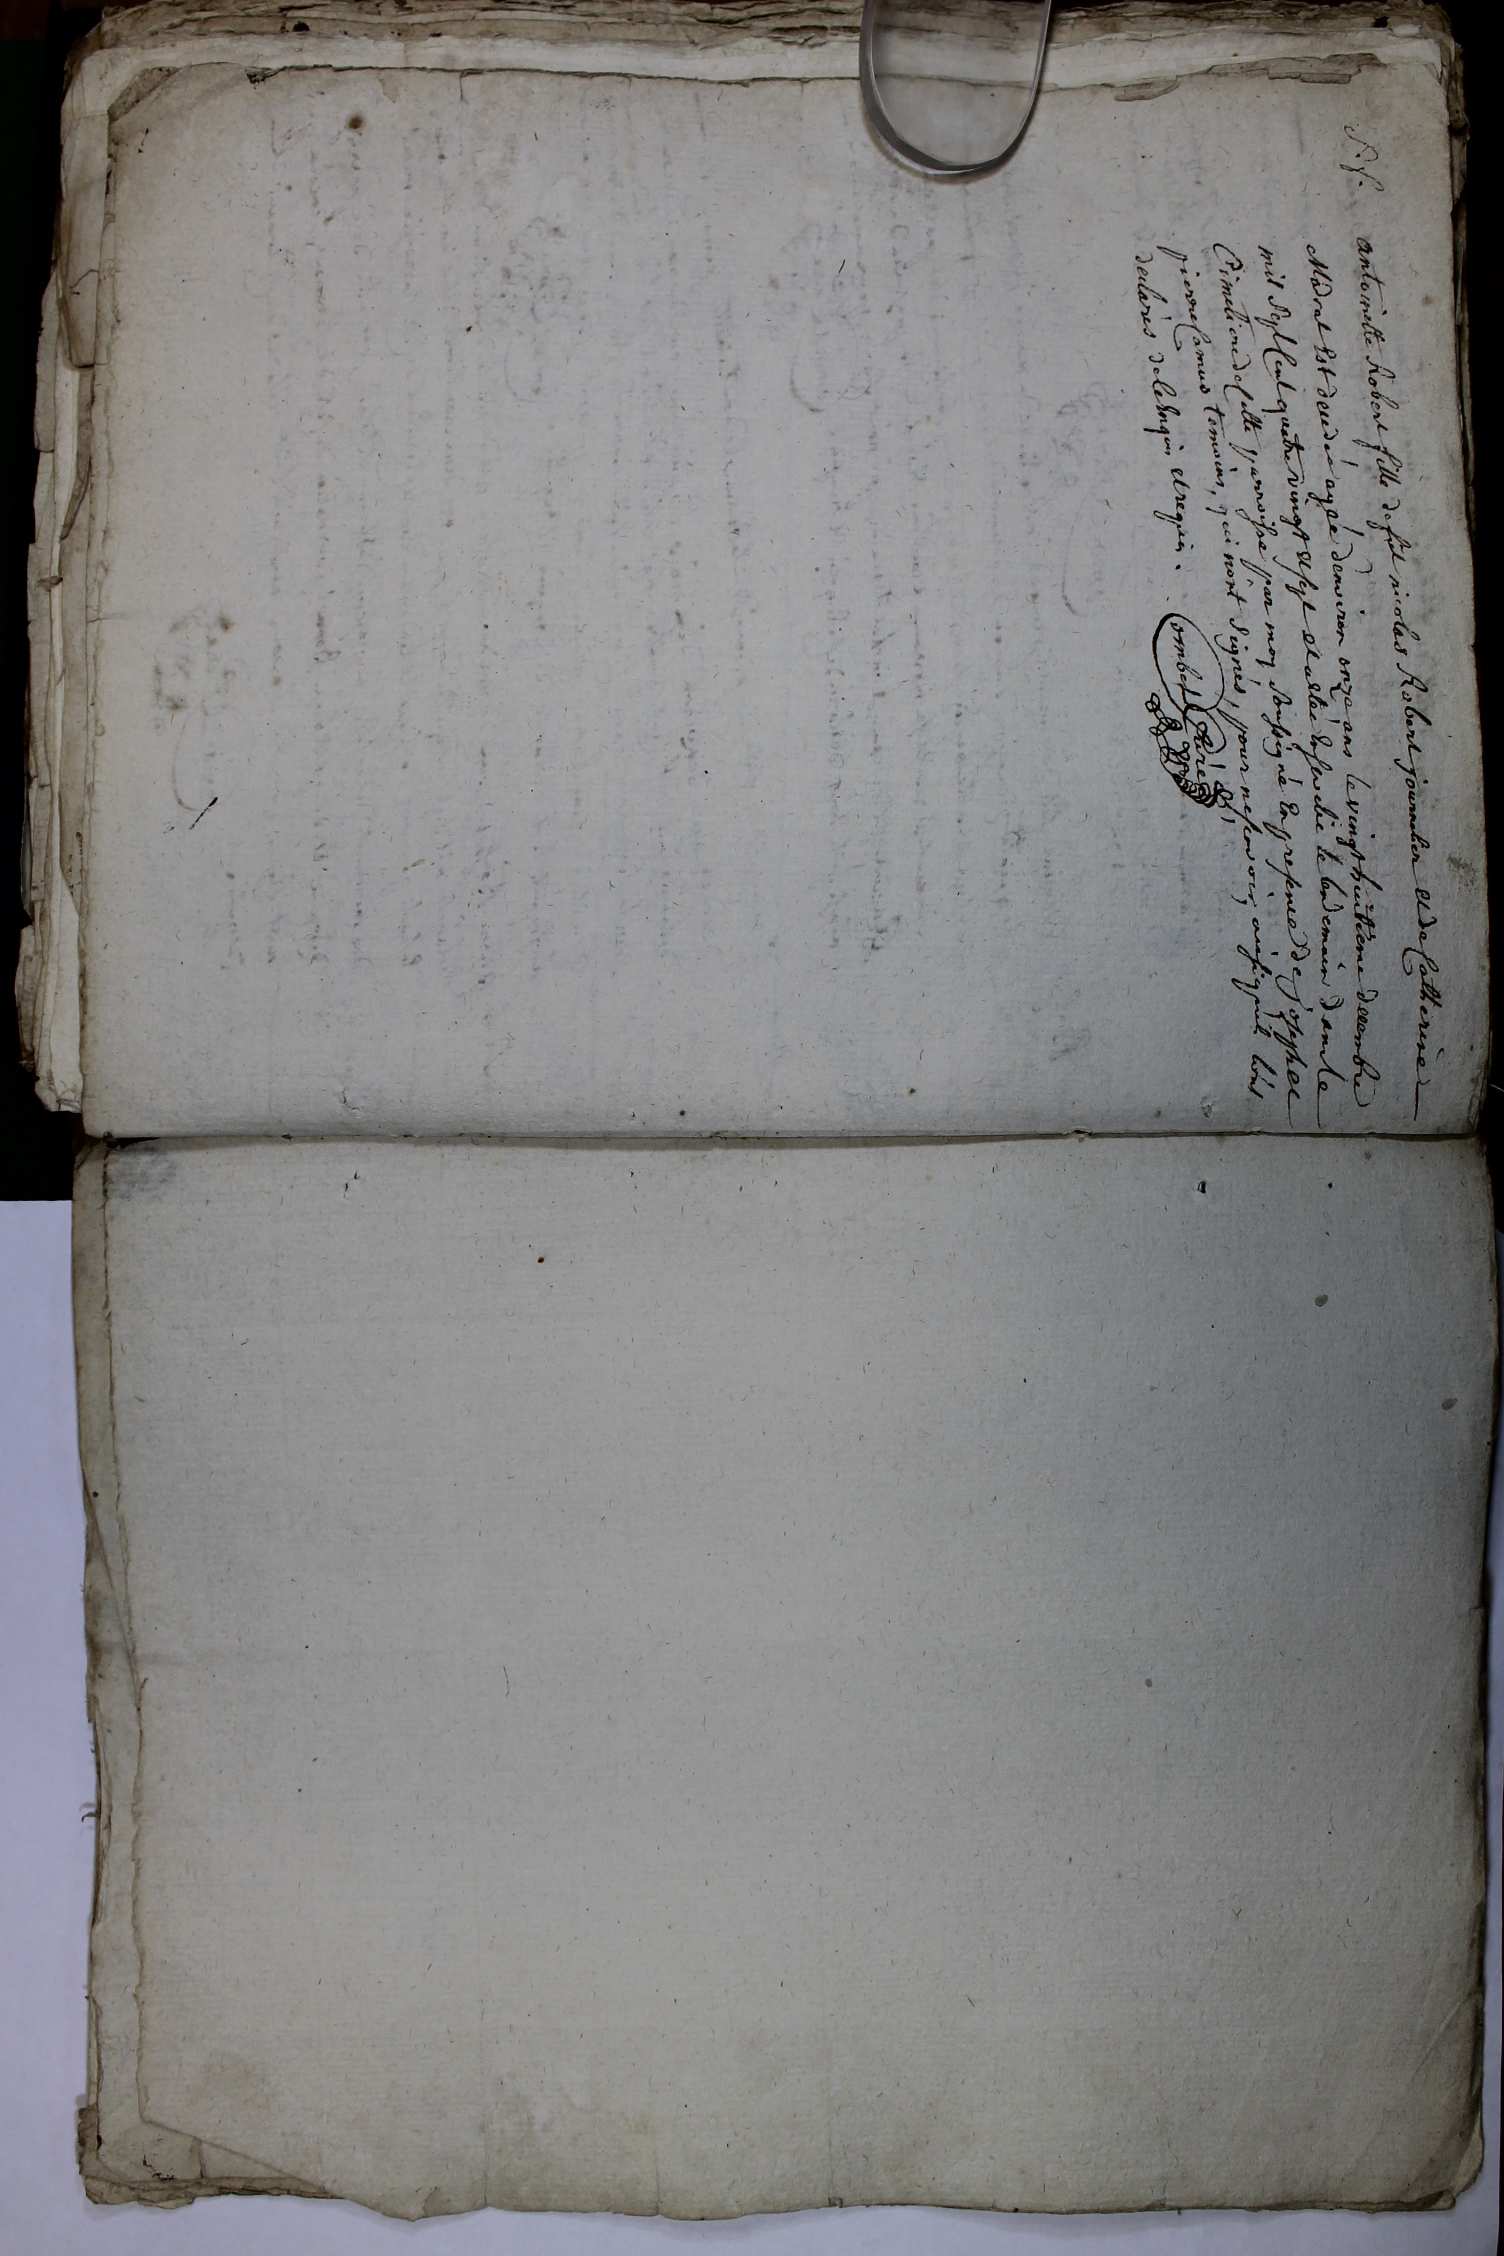 S. y.
antoinette Robert fille de fut nicolas Robert journalier et de Catherine
Madrat Est decedeé agéé denviron onze ans le vingt huitieme decembre
mil Sept Cent quatre vingt et sept et a été Ensevelie le lendemain dans le
Cimetiere de Cette parroisse par moy Soussigné En presence de joseph et
pierre Camus temoins, qui n'ont Signés, pour ne scavoir, ainsi qu'ils l'ont
declarés de ce Enquis et requis. Combes Curé